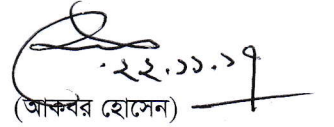 ২২.১১.১৭
(আকবর হোসেন)